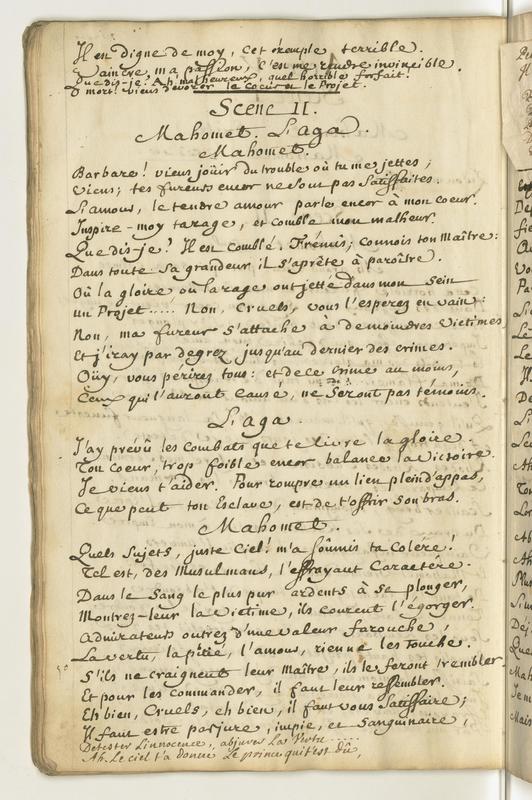 Il en digne de moy, cet éxemple terrible.
Vaincre, ma passion, c'en me rendre invincible.
Que dis-je? Ah malheureux, quel horrible forfait!
O mort! viens devorer le Cœur et le Projet.
Scene II.
Mahomet. L'aga.
Mahomet.
Barbare! viens joüir du trouble où tu me jettes;
Viens; tes fureurs encor ne sont pas Satisfaites.
L'amour, le tendre amour parle encor à mon coeur.
Inspire-moy ta rage, et comble mon malheur.
Que dis-je? Il est comblé. Frémis; connois ton Maître:
Dans toute sa grandeur il s'aprête à paroître.
Où la gloire où la rage ont jetté dans mon sein
un Projet..... Non, Cruels, vous l'espérez en vain:
Non, ma fureur s'attache à de moindres victimes
Et j'iray par degrez jusqu'au dernier des crimes.
Oüy, vous périrez tous: et de ce crime au moins,
Ceux qui l'auront Causé, ne Seront pas témoins.
L'aga.
J'ay prévû les Combats que te livre la gloire.
Ton coeur, trop foible encor balance la Victoire.
Je viens t'aider. Pour rompre un lien plein d'appas,
Ce que peut ton Esclave, est de t'offrir son bras.
Mahomet.
Quels Sujets, juste Ciel! m'a soûmis ta Colére!
Tel est, des Musulmans, l'effrayant Caractére.
Dans le Sang le plus pur ardents à se plonger,
Montrez-leur la victime, ils courent l'égorger.
Admirateurs outrez d'une valeur farouche,
La vertu, la pitié, l'amour, rien ne les touche.
S'ils ne craignent leur Maître, ils le feront trembler
Et pour les commander, il faut leur ressembler.
Eh bien, Cruels, eh bien, il faut vous Satisfaire;
Il faut estre parjure, impie, et Sanguinaire,
Detester L'innocence, abjurer La Vertu.....
Ah. Le ciel t'a donné Le prince qui t'est dû,